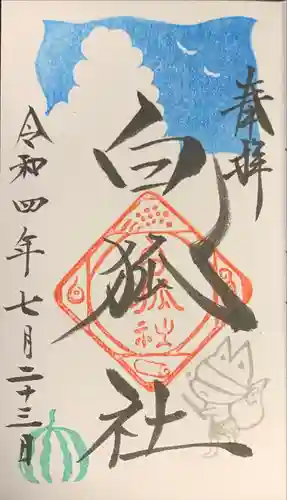 奉拝
白狐社
令和四年七月二十三日